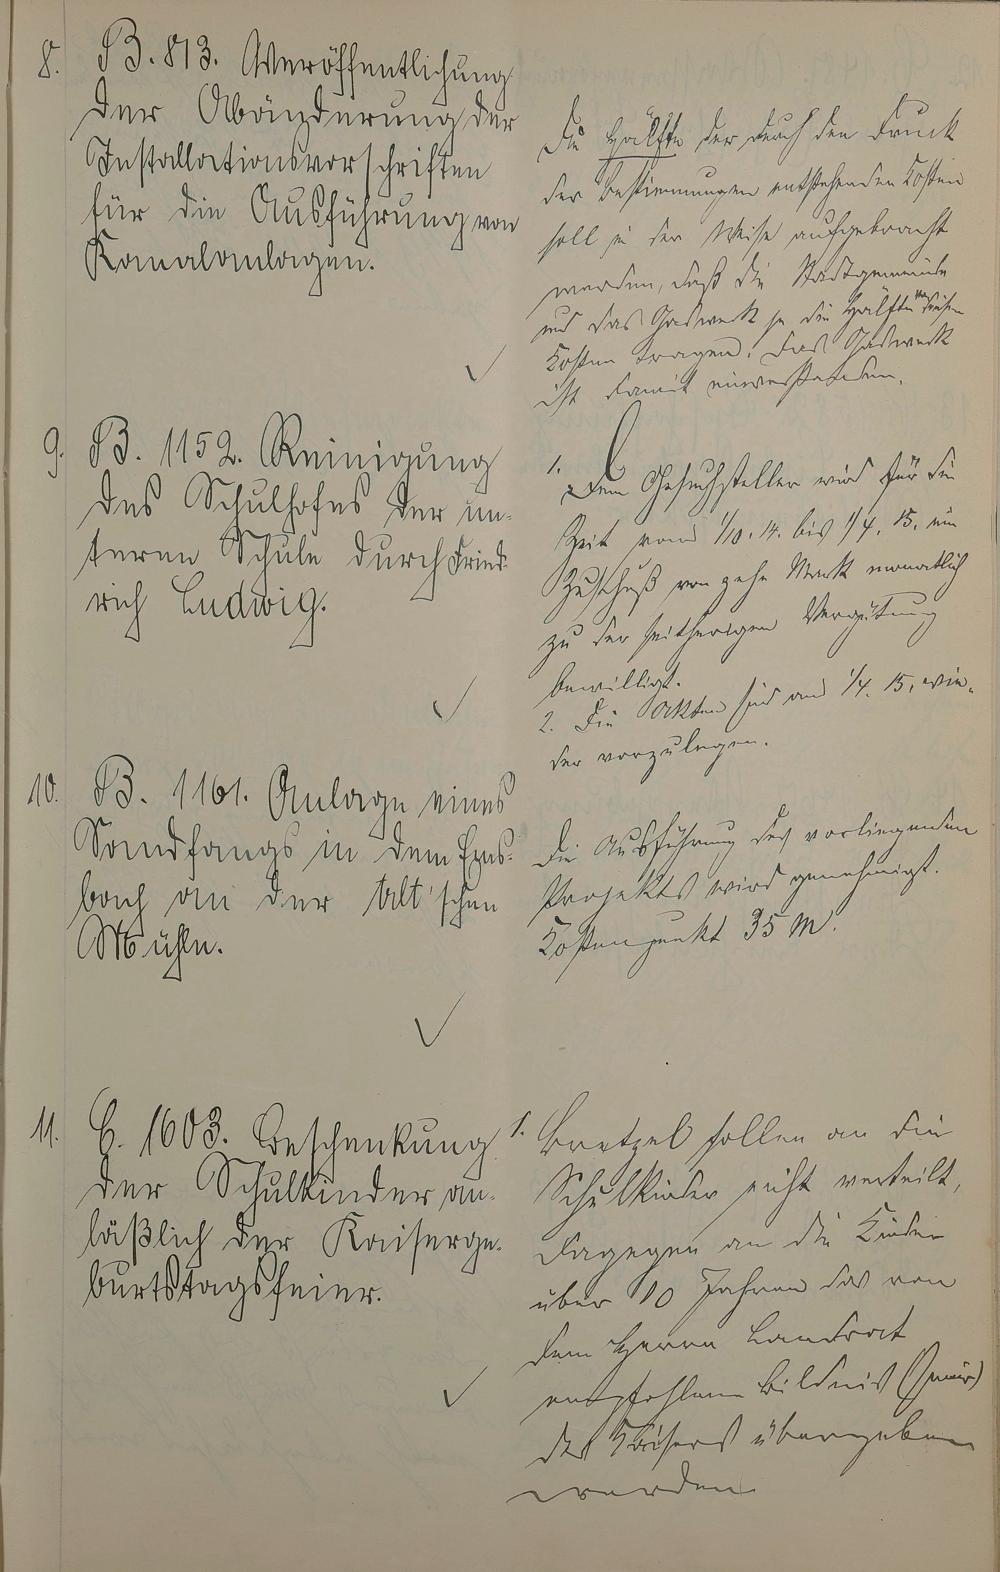 8. B. 813. Veröffentlichung
der Abänderung der
Installationsvorschriften
für die Ausführung von
Kanalanlagen.
Die Hälfte der durch den Druck
der Bestimmungen entstehenden Kosten
soll in der Weise aufgebracht
werden, daß die Stadtgemeinde
und das Gaswerk je die Hälfte dieser
Kosten tragen. Das Gaswerk
ist damit einverstanden.
9. B. 1152. Reinigung
des Schulhofes der un-
teren Schule durch Fried-
rich Ludwig.
1. Dem Gesuchsteller wird für die
Zeit vom 1/10. 14. bis 1/4. 15. ein
Zuschuß von zehn Mark monatlich
zu der seitherigen Vergütung
bewilligt.
2. Die Akten sind am 1/4. 15. wie-
der vorzulegen.
10. B. 1161. Anlage eines
Sandfangs in dem Erns-
bach an der Alt'schen
Mühle.
Die Ausführung des vorliegenden
Projekts wird genehmigt.
Kostenpunkt 35 M.
11. C. 1603. Beschenkung
der Schulkinder an-
läßlich der Kaiserge-
burtstagsfeier.
1. Bretzel sollen an die
Schulkinder nicht verteilt,
dagegen an die Kinder
über 10 Jahren das von
dem Herrn Landrat
empfohlene Bildnis
des Kaisers übergeben
werden.